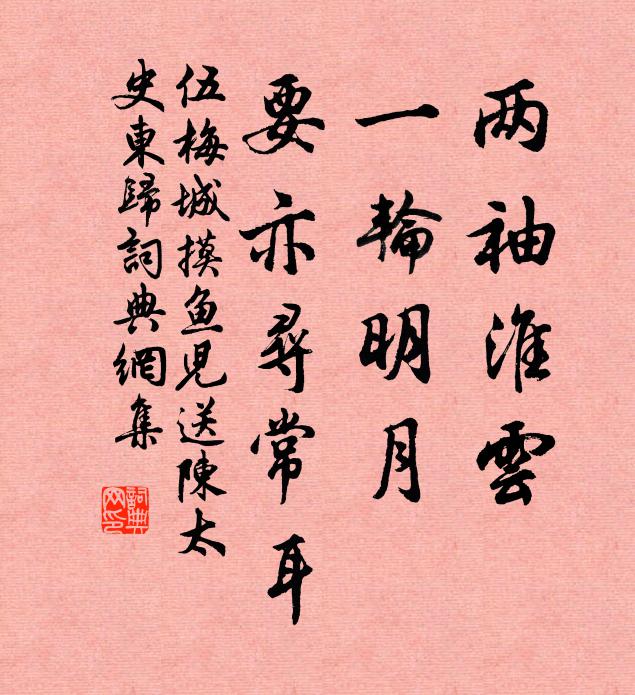 两袖淮雲
一輪明月
要亦尋常耳
伍梅城摸鱼児送陳太
史東歸詞典網集
詞典网印